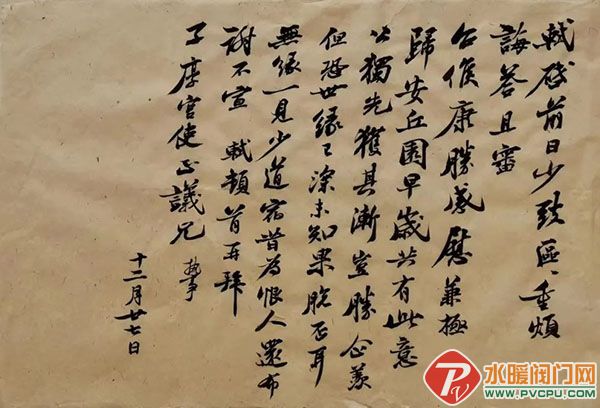 軾啓前日少致區〻重煩
誨答且審
台候康勝感慰兼極
歸安丘園早歲共有此意
公獨先獲其漸豈勝企羨
但恐世緣已深未知果脫否耳
無緣一見少道宿昔為恨人還布
謝不宣 軾頓首再拜
子厚宫使正議兄 執事
十二月廿七日
水暖阀门网
WWW.PVCPU.COM
PV